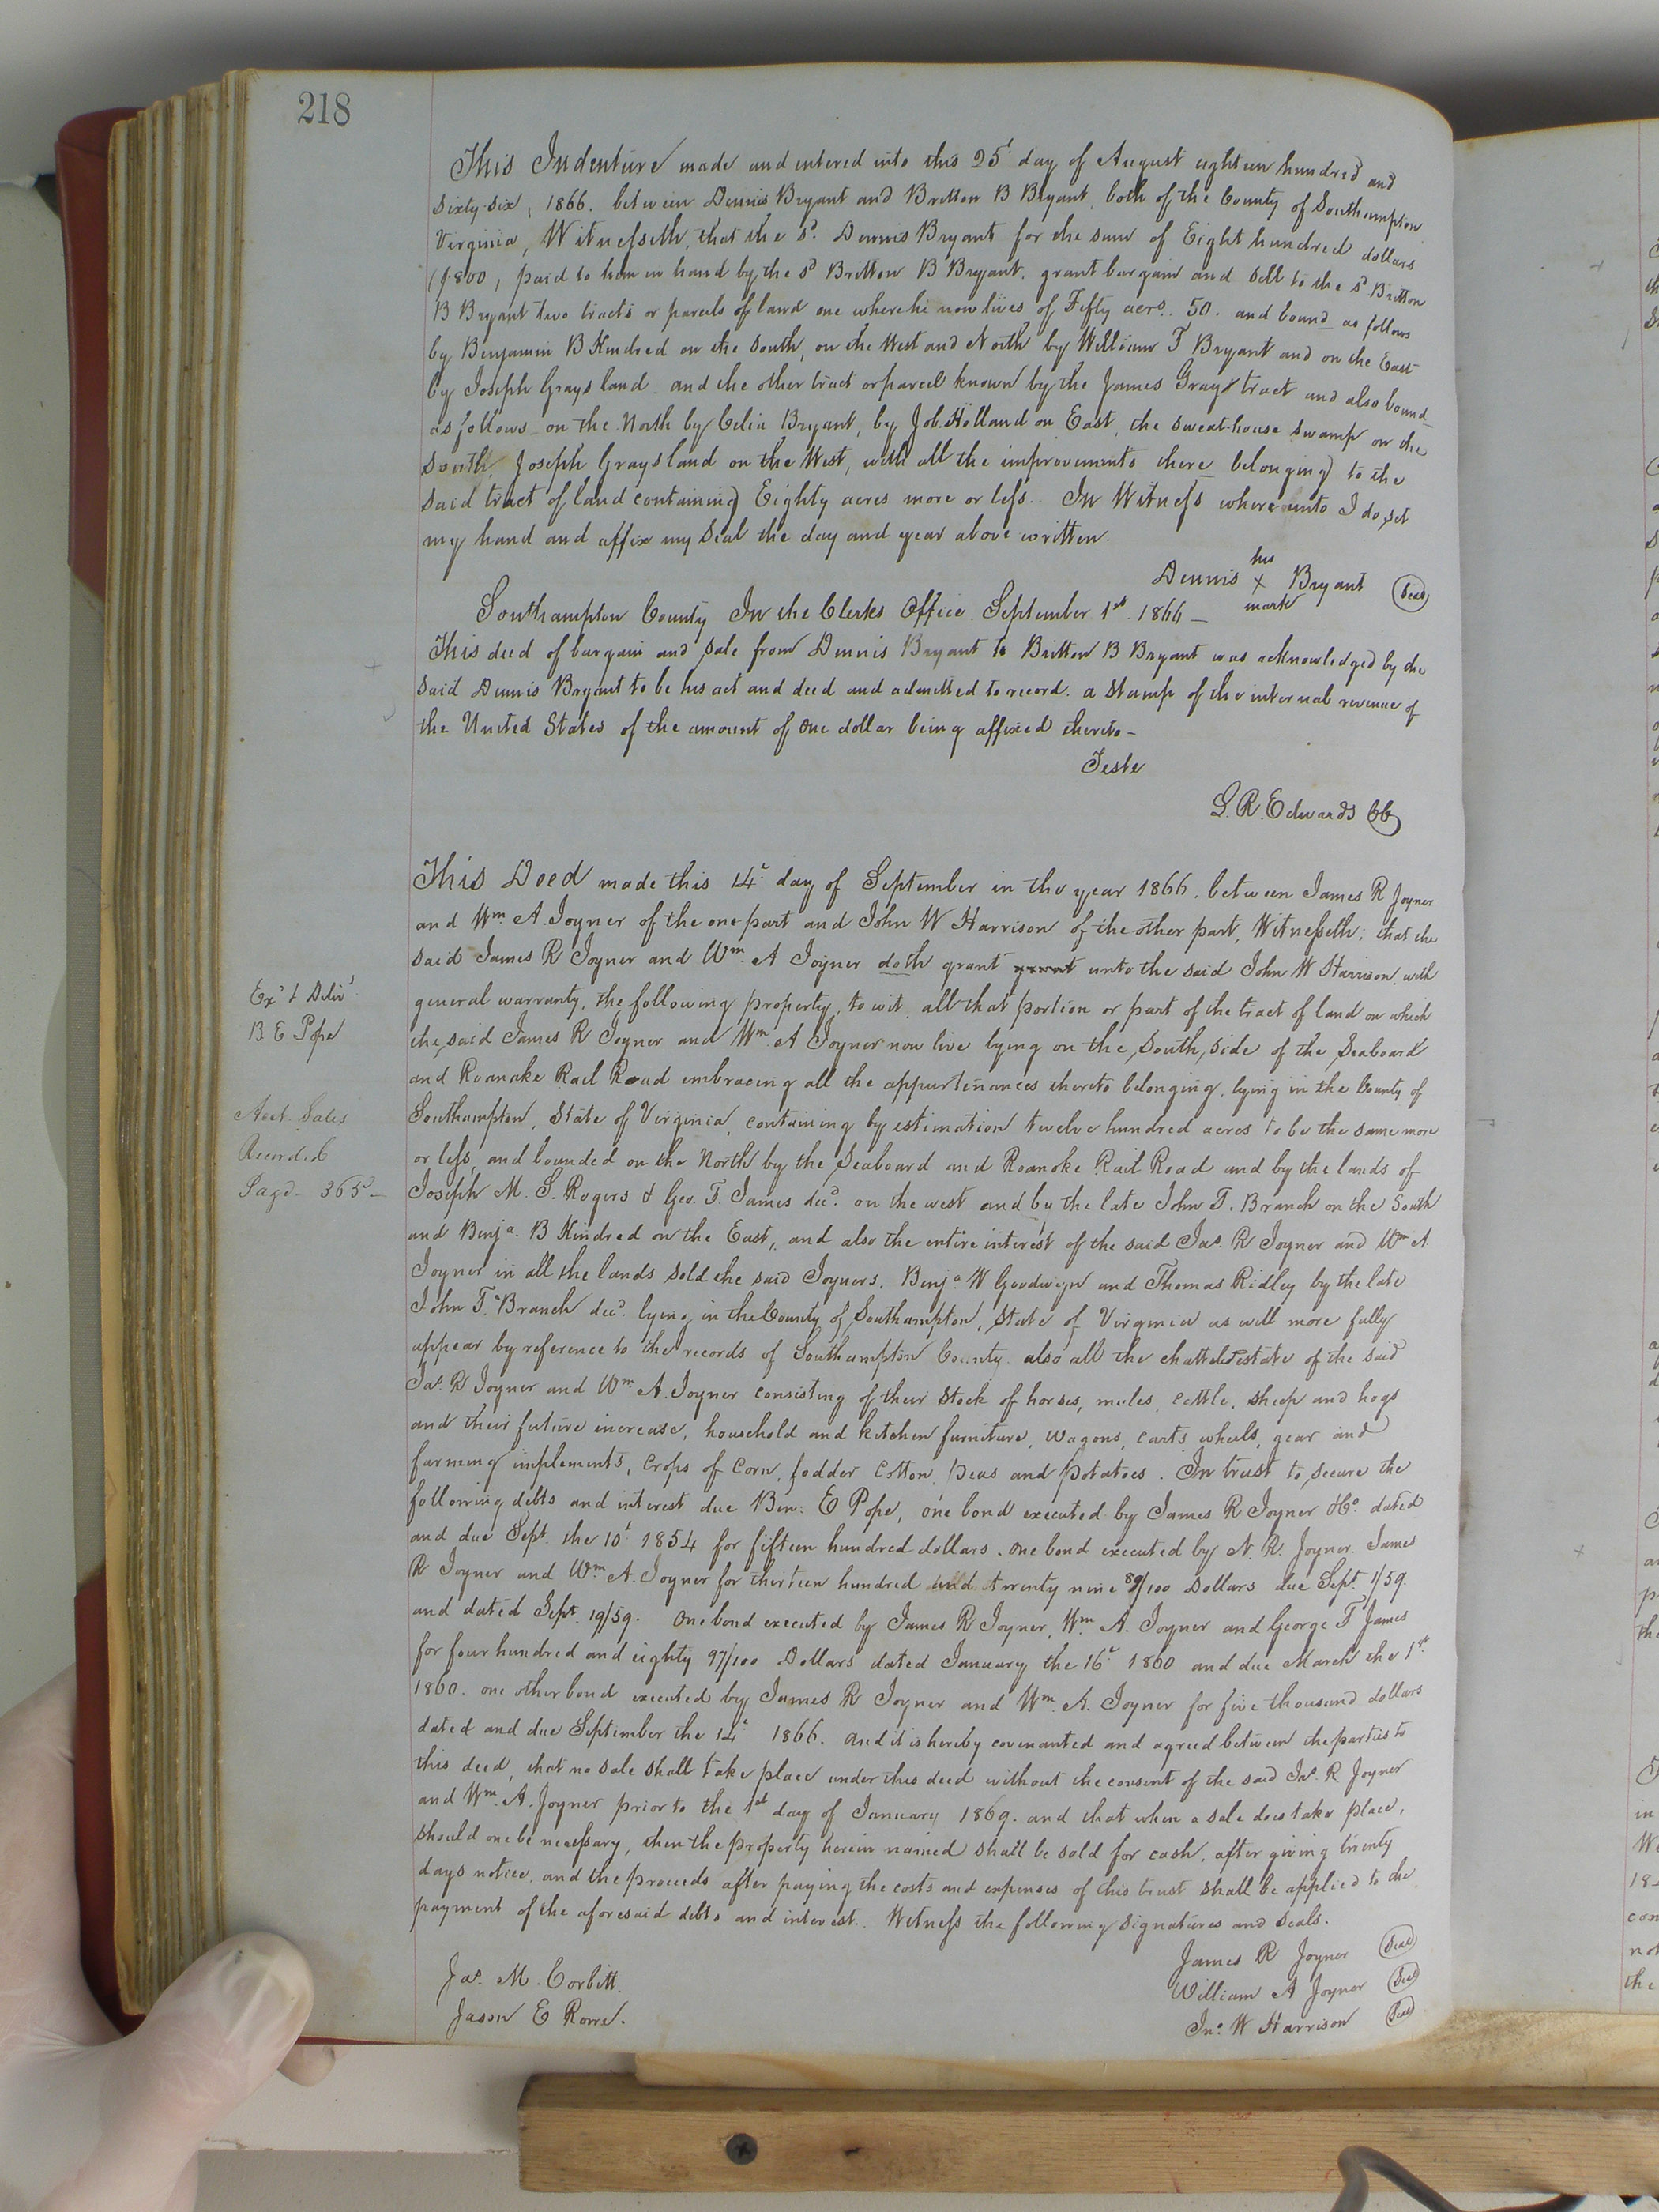 218
This Indenture made and entered into this 25t day of August eighteen hundred and
Sixty-six, 1866. between Dennis Bryant and Britton B Bryant, both of the County of Southampton
Virginia, Witnesseth, that the sd. Dennis Bryant for the sum of Eight hundred dollars
($800, paid to him in hand by the sd Britton B Bryant. grant bargain and sell to the sd Britton
B Bryant two tracts or parcels of land one where he now lives of Fifty acrs. 50. and bound as follows
by Benjamin B Kindred on the South, on the West and North by William T Bryant and on the East
by Joseph Grays land and the other tract or parcel known by the James Grays tract and also bound
as follows on the North by Celia Bryant, by Job. Holland on East, the sweat-house swamp on the
South Joseph Grays land on the West, with all the improvements there belonging to the
said tract of land containing Eighty acres more or less. In Witness where unto I do set
my hand and affix my Seal the day and year above written.
his
Dennis x Bryant Seal
mark
Southampton County In the Clerks Office September 1st. 1866 –
This deed of bargain and sale from Dennis Bryant to Britton B Bryant was acknowledged by the
said Dennis Bryant to be his act and deed and admitted to record. a Stamp of the internal revenue of
the United States of the amount of one dollar being affixed thereto –
Teste
L. R. Edwards CC
This Deed made this 14t day of September in the year 1866. between James R Joyner
and Wm A. Joyner of the one part and John W Harrison of the other part, Witnesseth; that the
said James R Joyner and Wm. A Joyner doth grant grant unto the said John W Harrison. with
general warranty, the following property, to wit, all that portion or part of the tract of land on which
the said James R Joyner and Wm. A Joyner now live lying on the South, side of the Seaboard
and Roanoke Rail Road embracing all the appurtenances thereto belonging, lying in the County of
Southampton, State of Virginia, containing by estimation twelve hundred acres to be the same more
or less, and bounded on the North by the Seaboard and Roanoke Rail Road and by the lands of
Joseph M. S. Rogers & Geo. T. James decd. on the west and by the late John T. Branch on the South
and Benja. B Kindred on the East, and also the entire interest of the said Jas. R Joyner and Wm A
Joyner in all the lands sold the said Joyners. Benja. W Goodwyn and Thomas Ridley by the late
John T. Branch decd. lying in the County of Southampton, State of Virginia as will more fully
appear by reference to the records of Southampton County. also all the chattel estate of the said
Jas. R Joyner and Wm. A. Joyner consisting of their Stock of horses, mules, cattle, sheep and hogs
and their future increase, household and kitchen furniture, wagons, carts, wheels, gear and
farming implements, crops of corn, fodder cotton, peas and potatoes. In trust to secure the
following debts and interest due Ben: E Pope, one bond executed by James R Joyner &Co. dated
and due Sept. the 10t 1854 for fifteen hundred dollars. one bond executed by N. R. Joyner. James
R Joyner and Wm A. Joyner for thirteen hundred and twenty nine 89/100 Dollars due Sept. 1/59.
and dated Sept. 19/59. One bond executed by James R Joyner, Wm. A. Joyner and George T James
for four hundred and eighty 97/100 Dollars dated January the 16t 1860 and due March the 1st.
1860. one other bond executed by James R Joyner and Wm. A. Joyner for five thousand dollars
dated and due September the 14t 1866. and it is hereby covenanted and agreed between the parties to
this deed, that no sale shall take place under this deed without the consent of the said Jas. R Joyner
and Wm. A. Joyner prior to the 1st day of January 1869. and that when a sale does take place,
should one be necessary, then the property herein named shall be sold for cash. after giving twenty
days notice, and the proceeds after paying the costs and expenses of this trust shall be applied to the
payment of the aforesaid debts and interest. Witness the following signatures and seals.
James R Joyner Seal
William A Joyner Seal
Jno. W Harrison Seal
Jas. M. Corbitt.
Jason E Rowe.
Exd & Delivd
B E Pope
Acct. Sales
Recorded
Page 365 –